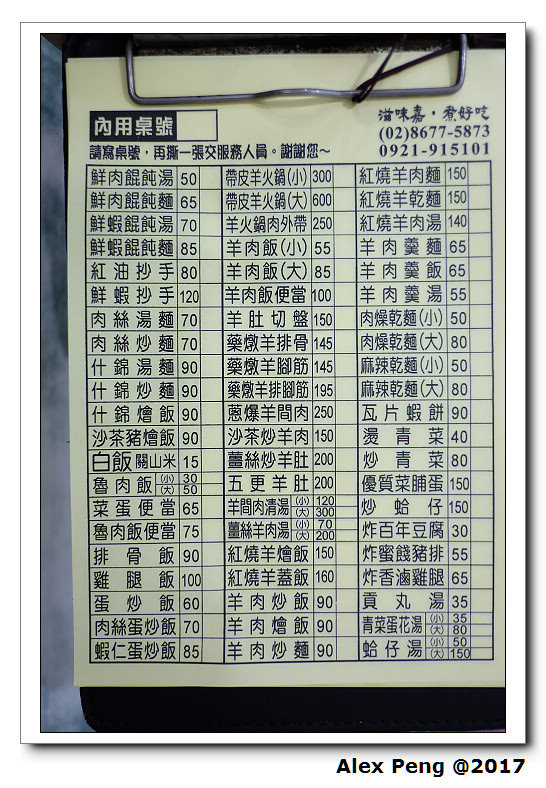 滋味嘉，煮好吃
內用桌號
(02)8677-5873
0921-915101
請寫桌號，再撕一張交服務人員。謝謝您～
鮮肉餛飩湯 50 帶皮羊火鍋(小) 300 紅燒羊肉麵 150
鮮肉餛飩麵 65 帶皮羊火鍋(大) 600 紅燒羊乾麵 150
鮮蝦餛飩湯 70 羊火鍋肉外帶 250 紅燒羊肉湯 140
鮮蝦餛飩麵 85 羊肉飯(小) 55 羊肉羹麵 65
紅油抄手 80 羊肉飯(大) 85 羊肉羹飯 65
鮮蝦抄手 120 羊肉飯便當 100 羊肉羹湯 55
肉絲湯麵 70 羊肚切盤 150 肉燥乾麵(小) 50
肉絲炒麵 70 藥燉羊排骨 145 肉燥乾麵(大) 80
什錦湯麵 90 藥燉羊腳筋 145 麻辣乾麵(小) 50
什錦炒麵 90 藥燉羊排腳筋 195 麻辣乾麵(大) 80
什錦燴飯 90 蔥爆羊間肉 250 瓦片蝦餅 90
沙茶豬燴飯 90 沙茶炒羊肉 150 燙青菜 40
白飯 關山米 15 薑絲炒羊肚 200 炒青菜 80
魯肉飯 (小) 30 (大) 50 五更羊肚 200 優質菜脯蛋 150
菜蛋便當 65 羊間肉清湯 (小) 120 (大) 300 炒蛤仔 150
魯肉飯便當 75 薑絲羊肉湯 (小) 70 (大) 200 炸百年豆腐 30
排骨飯 90 紅燒羊燴飯 150 炸蜜餞豬排 55
雞腿飯 100 紅燒羊蓋飯 160 炸香滷雞腿 65
蛋炒飯 60 羊肉炒飯 90 貢丸湯 35
肉絲蛋炒飯 70 羊肉燴飯 90 青菜蛋花湯 (小) 35 (大) 80
蝦仁蛋炒飯 85 羊肉炒麵 90 蛤仔湯 (小) 50 (大) 150
Alex Peng @2017